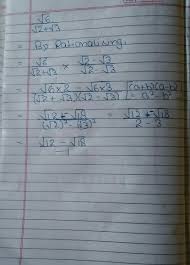 √6
√2+√3
= By Rationalising,
= √6/(√2+√3) × (√2-√3)/(√2-√3)
= (√6×2 - √6×3)/((√2+√3)(√2-√3)) [(a+b)(a-b) = a²-b²
= (√12 - √18)/((√2)²-(√3)²) = (√12-√18)/(2-3)
= (√12 - √18)/-1